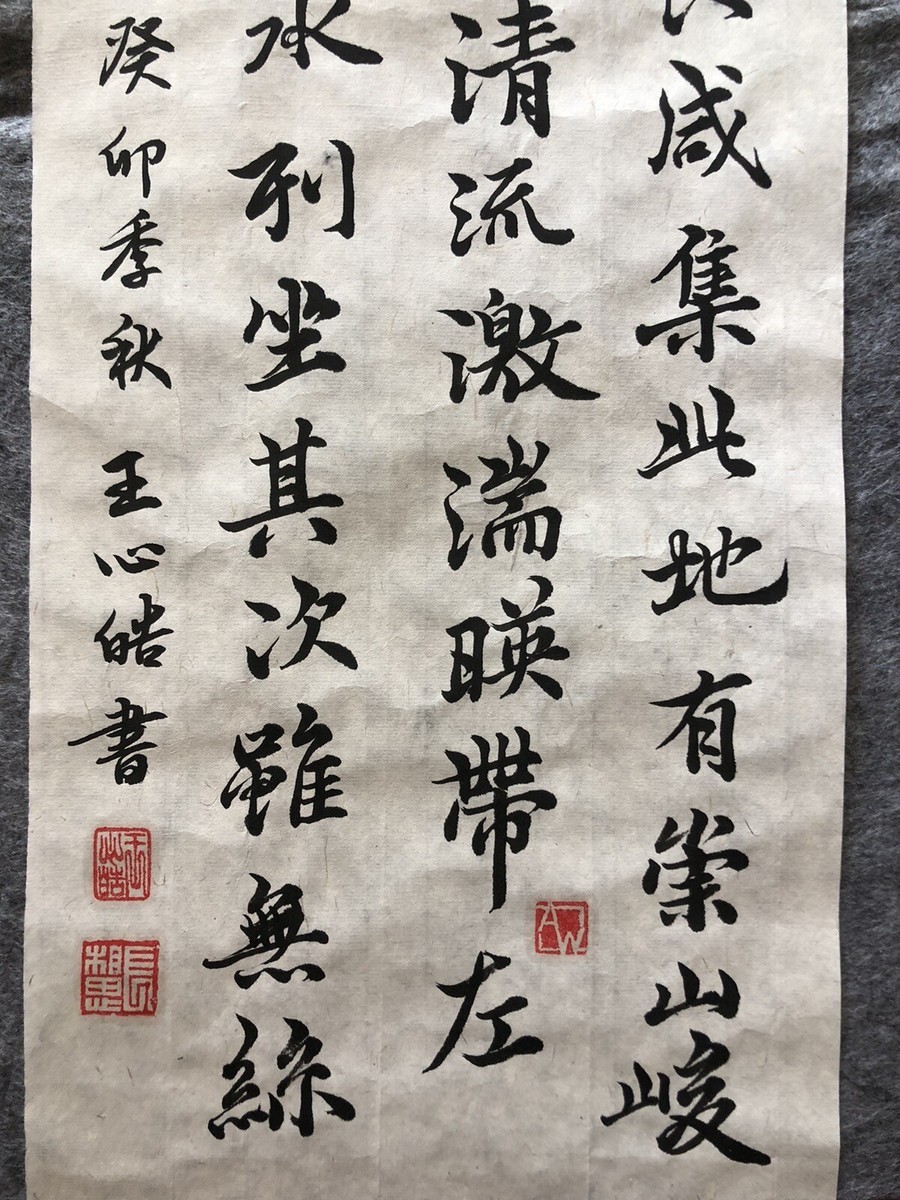 咸集此地有崇山峻
清流激湍暎帶左
水列坐其次雖無絲
癸卯季秋 王心皓書
王心皓
AW